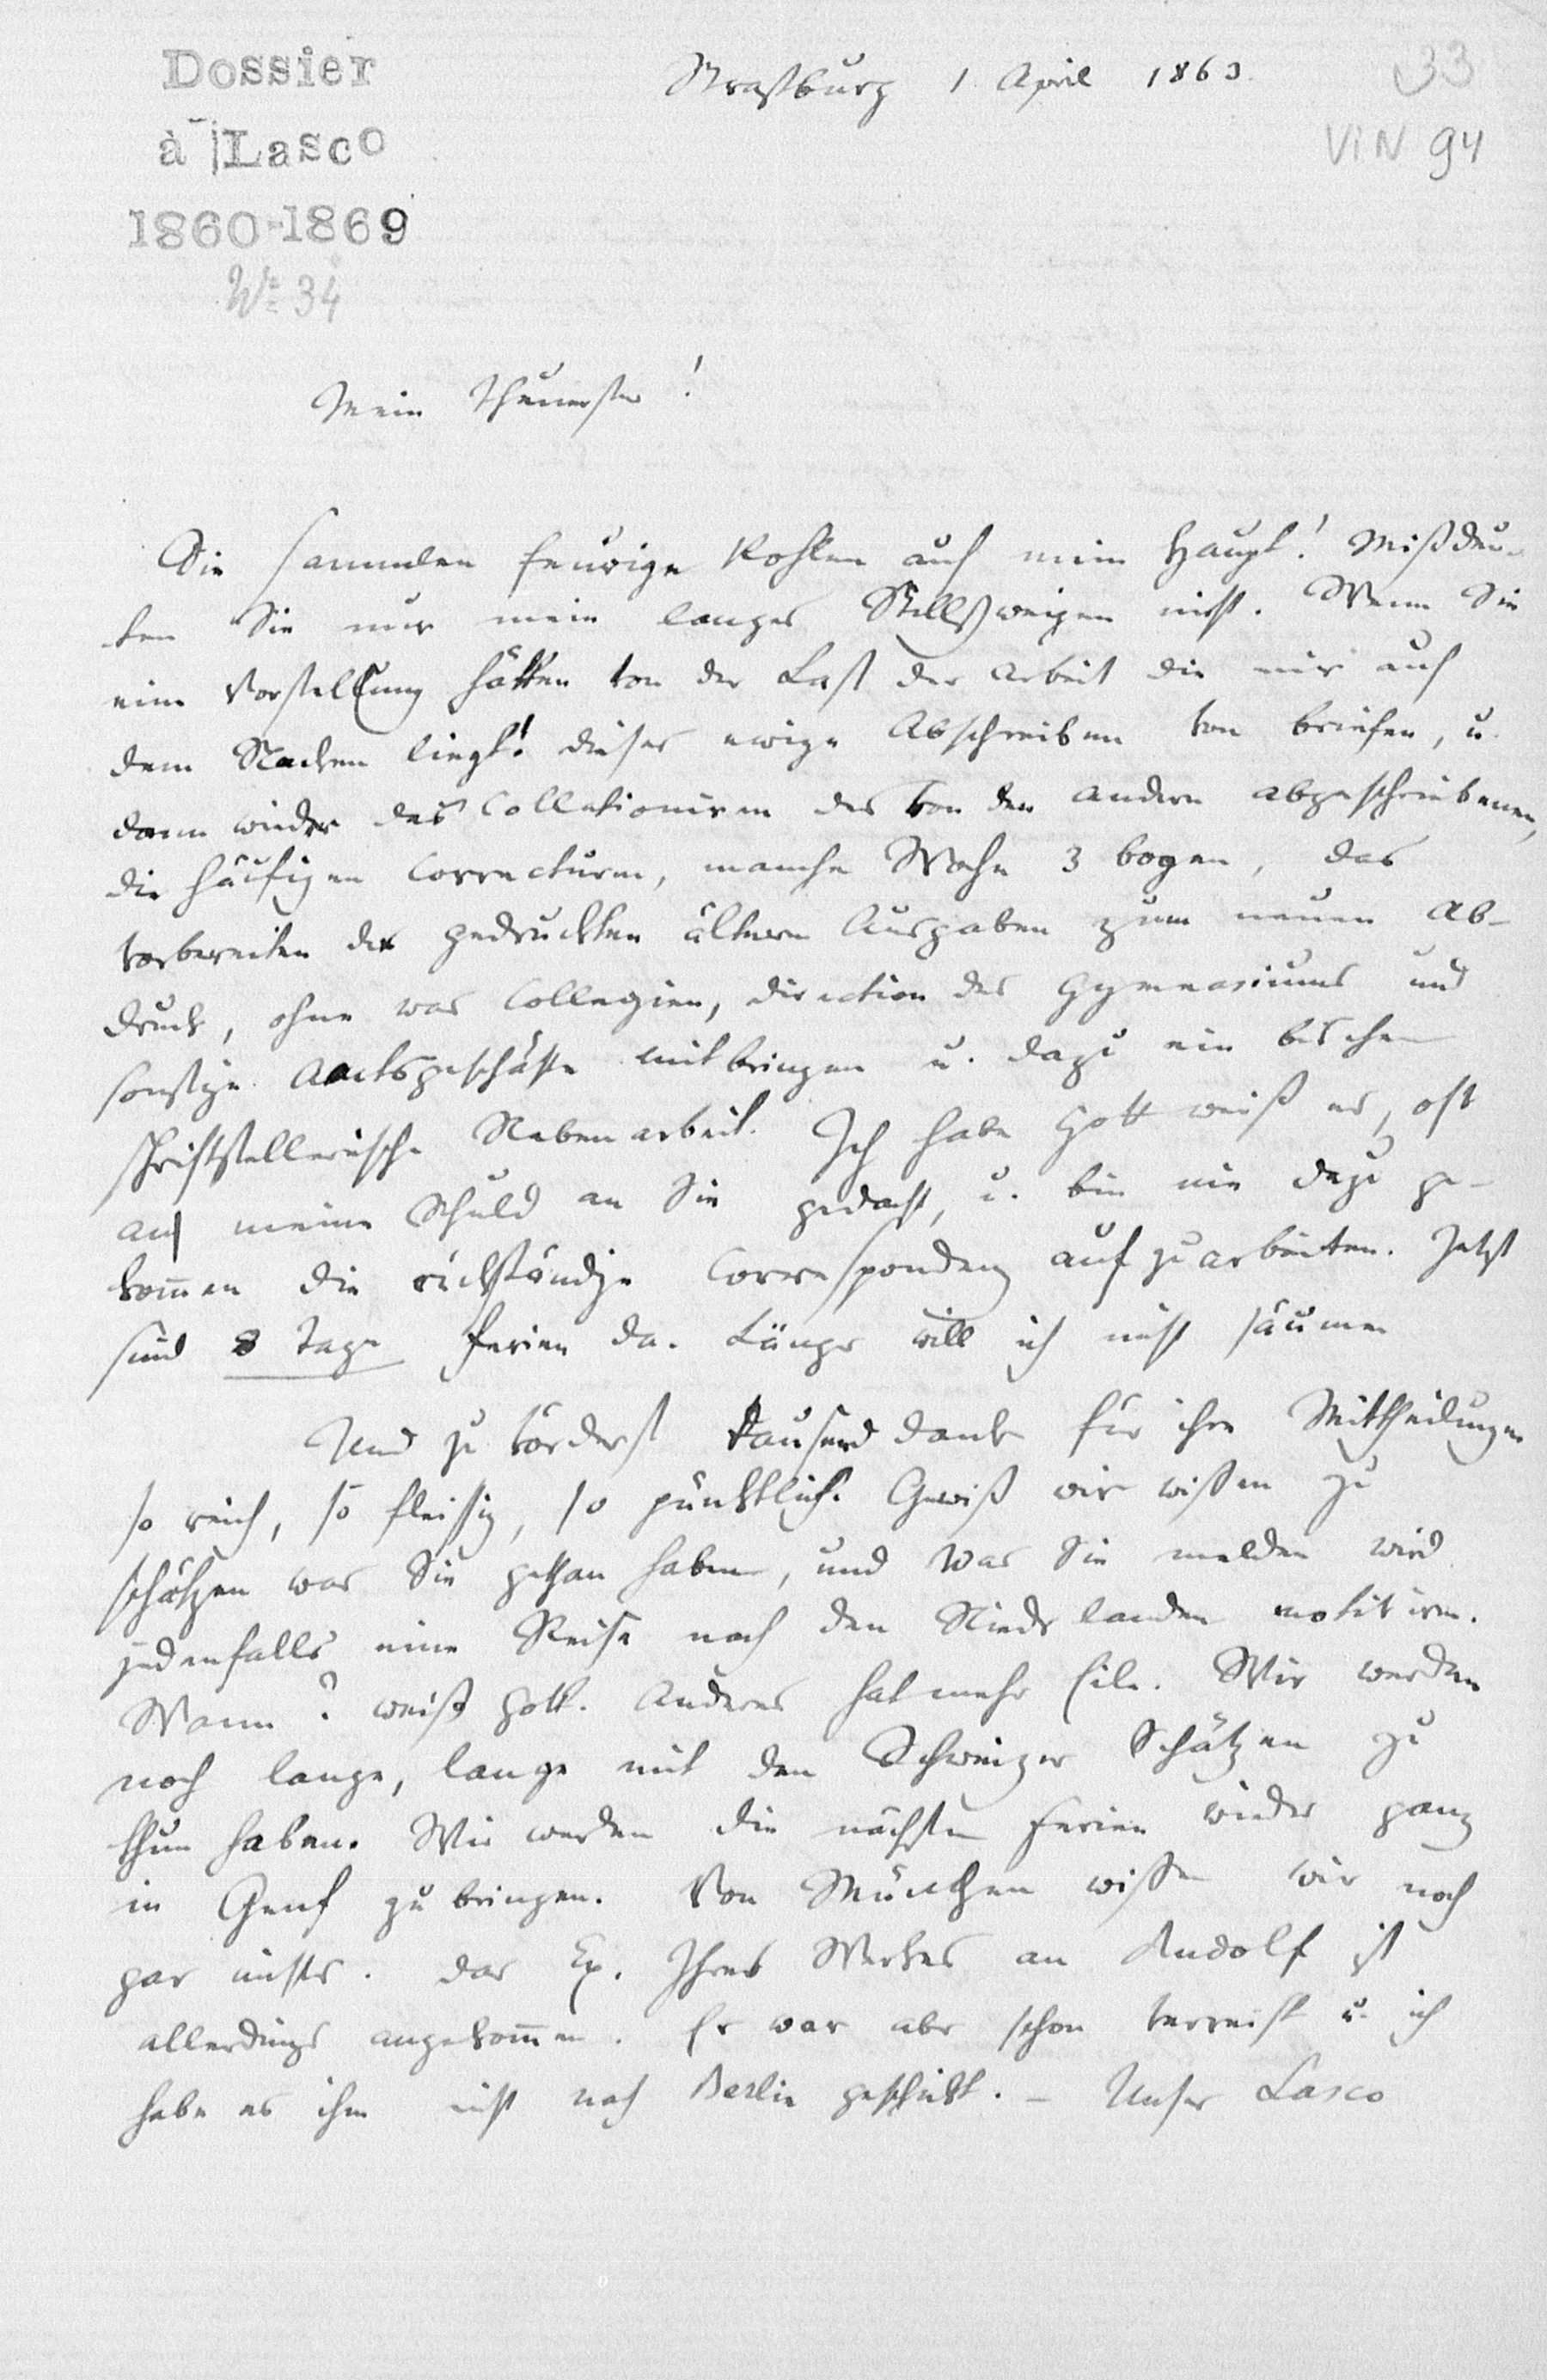 Dossier
à Lasco
1860-1869
No 34
Straßburg 1. April 1863.
33
VIN 94
Mein Theuerster!
Sie sammlen feurige Kohlen auf mein Haupt! Mißdeu-
ten Sie nur mein langes Stillschweigen nicht. Wenn Sie
eine Vorstellung hätten von der Last der Arbeit die mir auf
dem Nacken liegt! dieses ewige Abschreiben von briefen, u.
dann wieder das Collationiren der von den andern abgeschriebenen,
die häufigen Correcturen, manche Woche 3 bogen, das
vorbereiten der gedruckten ältern Ausgaben zum neuen Ab-
druck, ohne was Collegien, direction des Gymnasiums und
sonstige Amtsgeschäfte mitbringen u. dazu ein bischen
schriftstellerische Nebenarbeit. Ich habe Gott weiß es, oft
an meine Schuld an Sie gedacht, u. bin nie dazu ge-
kom̄en die rückständige Correspondenz aufzuarbeiten. Jetzt
sind 8 Tage ferien da. Länger will ich nicht säumen
Und zu vörderst tausend dank für ihre Mittheilungen
so reich, so fleissig, so pünktlich. Gewiß wir wißen zu
schätzen was Sie gethan haben, und was Sie melden wird
jedenfalls eine Reise nach den Niederlanden motiviren.
Wann? weiß Gott. Anderes hat mehr Eile. Wir werden
noch lange, lange mit den Schweizer Schätzen zu
thun haben. Wir werden die nächsten ferien wieder ganz
in Genf zubringen. Von München wissen wir noch
gar nichts. Das Ex. Ihres Werkes an Rudolf ist
allerdings angekom̄en. Er war aber schon verreist u. ich
habe es ihm nicht nach Berlin geschickt. – Unser Lasco